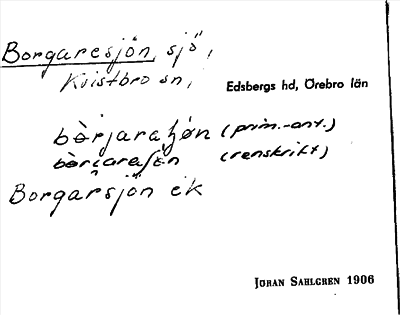 Borgaresjön, sjö,
Kvistbro sn, Edsbergs hd, Örebro län
(prim.-ant.)
(renskrift)
Borgarsjön ek
JÖRAN SAHLGREN 1906